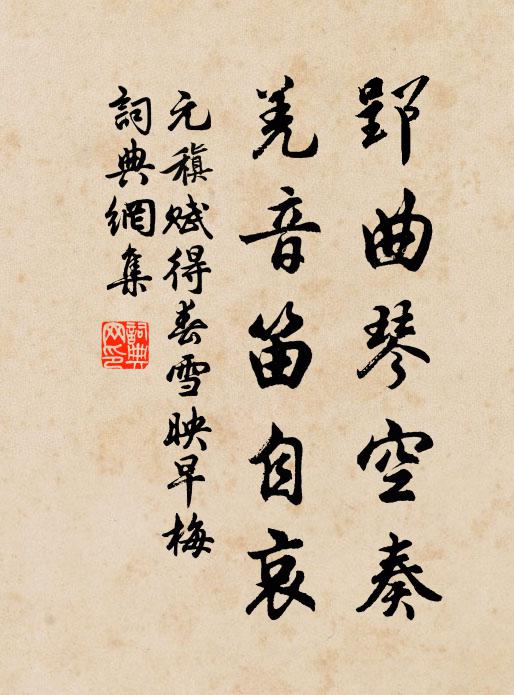 郢曲琴空奏
羌音笛自哀
元稹賦得春雪映早梅
詞典網集
詞典網印